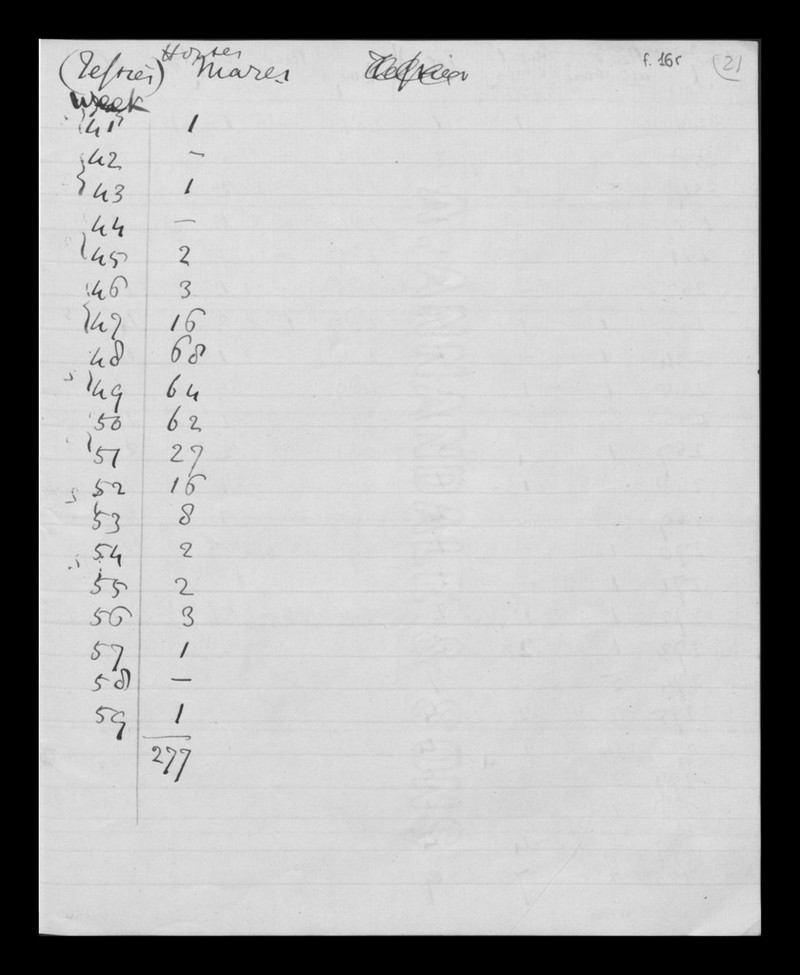 Horses f. 16r 21
(Tessier) Mares
week
41 1
42 –
43 1
44 –
45 2
46 3
47 16
48 68
49 64
50 62
51 27
52 16
53 8
54 2
55 2
56 3
57 1
58 –
59 1
277